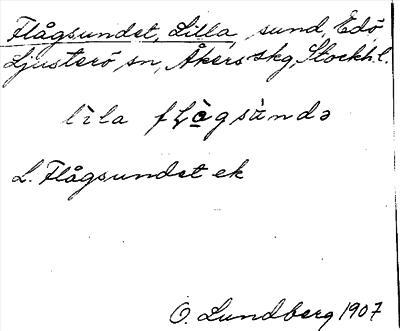 Flågsundet, Lilla, sund, Edö,
Ljusterö sn, Åkers skg, Stockh. l.
lìla fLògsùndə
L. Flågsundet ek
O. Lundberg 1907